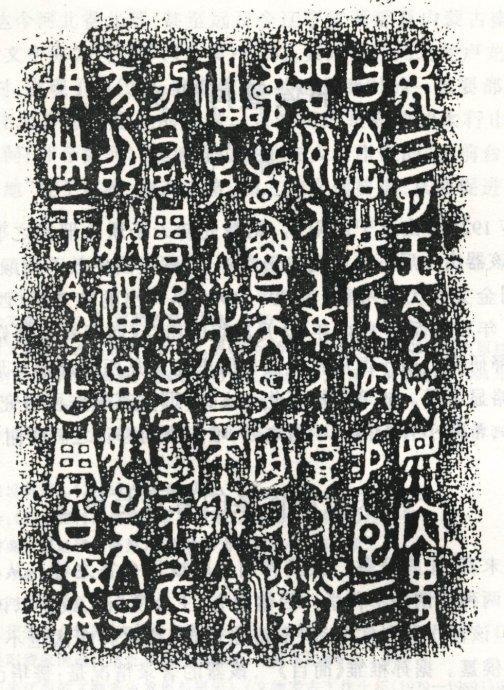 隹三月王令𤇾眔內史
曰𦵯井侯服易臣三
品州人重人庸人拜
稽首魯天子𠭯厥瀕
福克奔走上下帝無冬令
于右周追考對不敢
㒸卲朕福盟朕臣天子
用冊王令乍周公彝